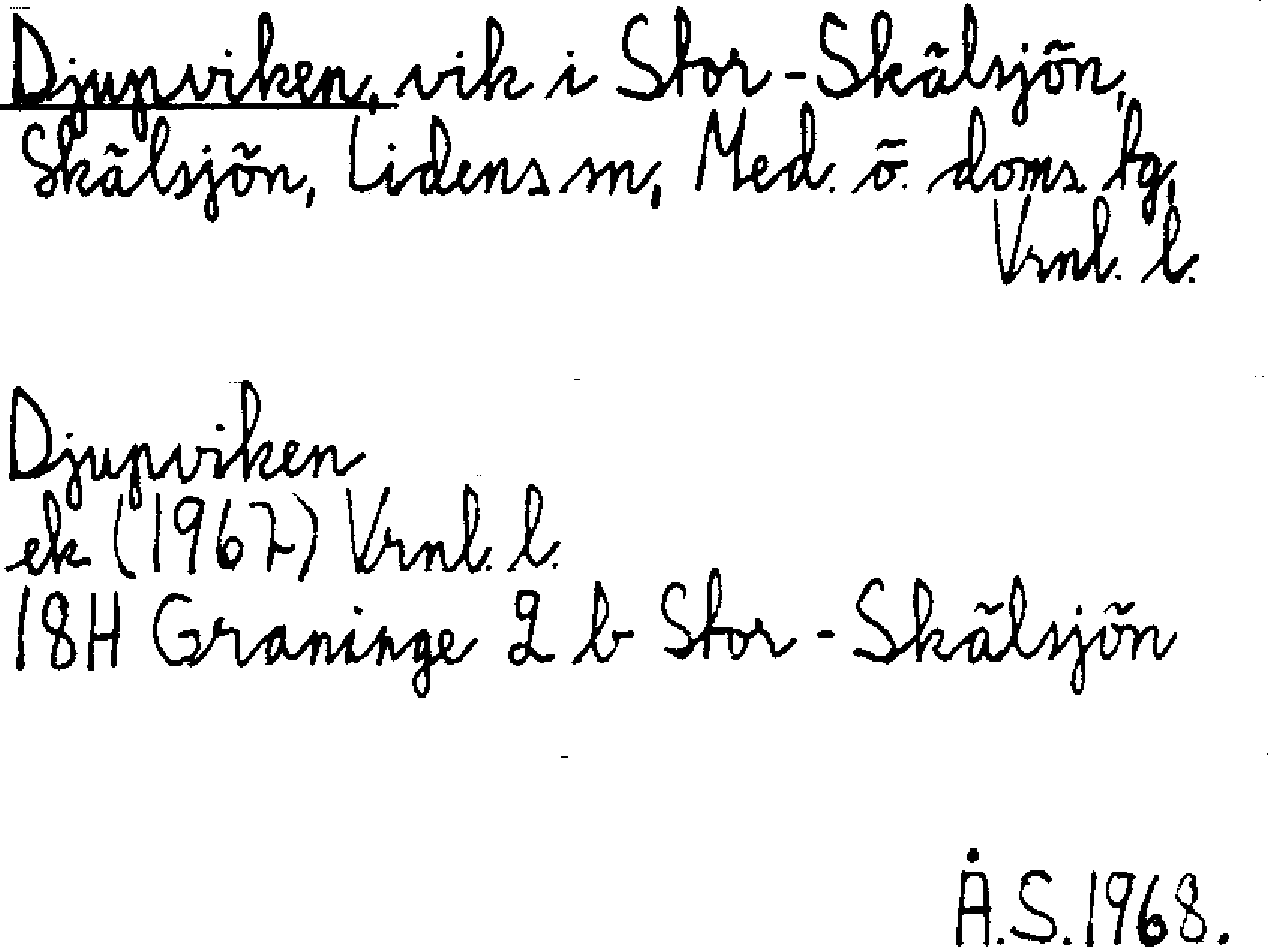 Djupviken, vik i Stor-Skälsjön,
Skälsjön, Lidens sn, Med. ö. doms. tg,
Vrnl. l.
Djupviken
ek (1967) Vrnl. l.
18H Graninge 2 b Stor-Skälsjön
Å.S. 1968.